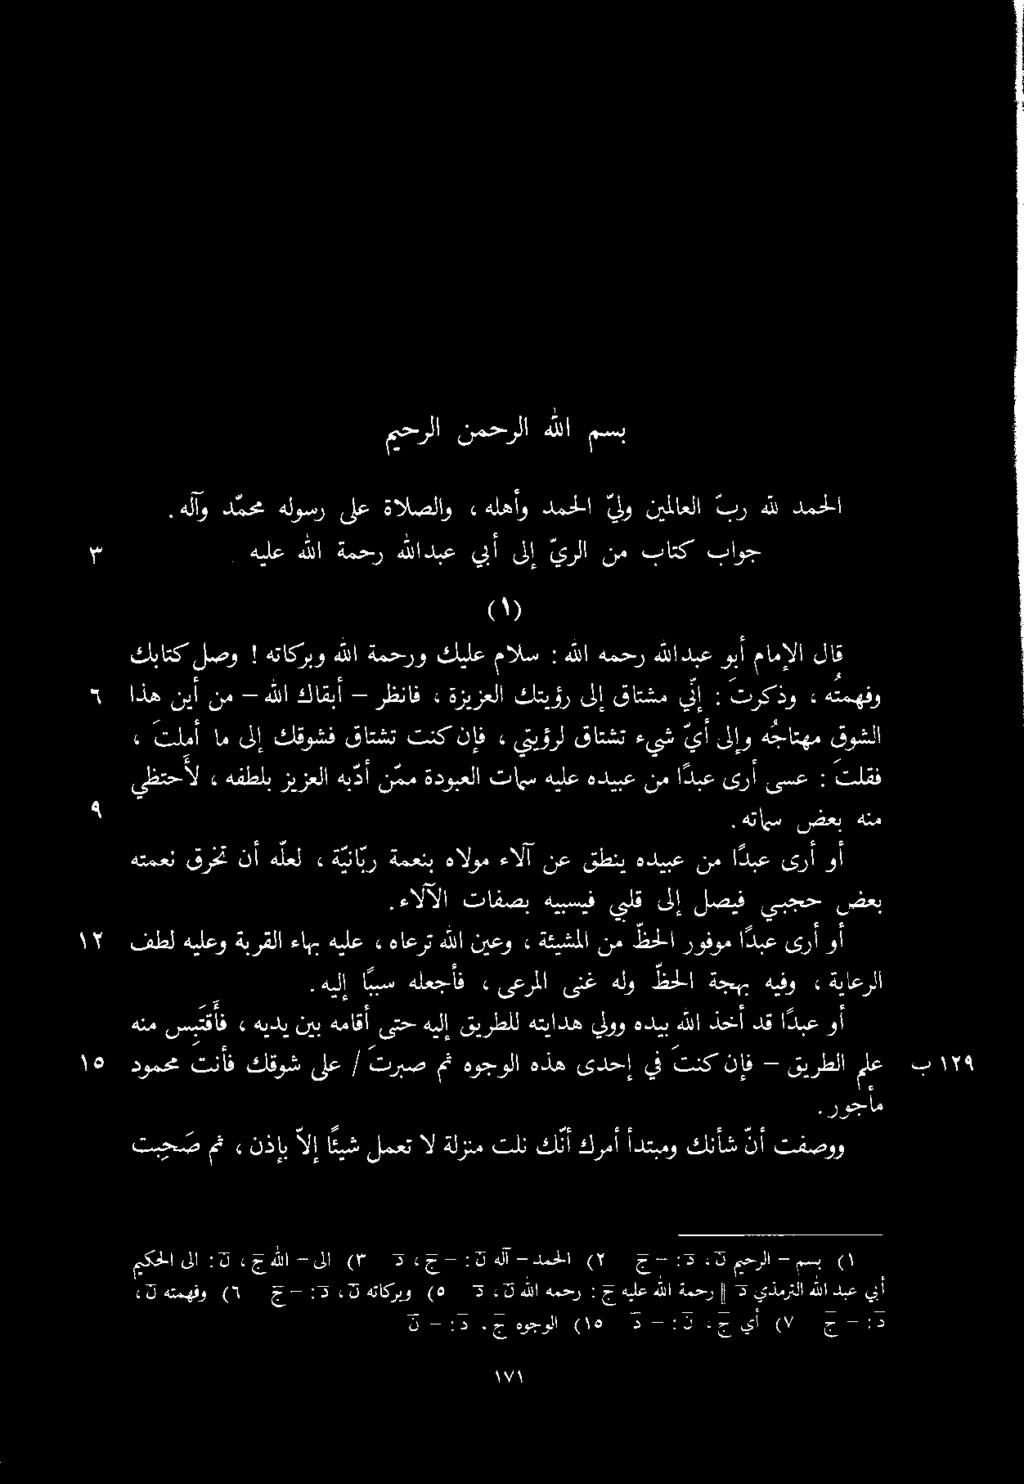 بسم الله الرحمن الرحيم
الحمد لله ربّ العالمين وليّ الحمد وأهله ، والصلاة على رسوله محمّد وآله.
جواب كتاب من الريّ إلى أبي عبدالله رحمة الله عليه ٣
(١)
قال الإمام أبو عبدالله رحمه الله : سلام عليك ورحمة الله وبركاته ! وصل كتابك
وفهمتُه ، وذكرتَ : إنّي مشتاق إلى رؤيتك العزيزة ، فانظر – أبقاك الله – من أين هذا ٦
الشوق مهتاجُه وإلى أيّ شيء تشتاق لرؤيتي ، فإن كنت تشتاق فشوقك إلى ما أملتَ ،
فقلتَ : عسى أرى عبدًا من عبيده عليه سمات العبودة ممّن أدّبه العزيز بلطفه ، لأَحتظي
منه بعض سماته. ٩
أو أرى عبدًا من عبيده ينطق عن آلاء مولاه بنعمة ربّانيّة ، لعلّه أن تخرق نعمته
بعض حجبـي فيصل إلى قلبي فيسبيه بصفات الآلاء.
أو أرى عبدًا موفور الحظّ من المشيئة ، وعين الله ترعاه ، عليه بهاء القربة وعليه لطف ١٢
الرعاية ، وفيه بهجة الحظّ وله غنى المرعى ، فأجعله سببًا إليه.
أو عبدًا قد أخذ الله بيده وولي هدايته للطريق إليه حتى أقامه بين يديه ، فأَقتَبِس منه
علم الطريق – فإن كنتَ في إحدى هذه الوجوه ثم صبرتَ / على شوقك فأنتَ محمود ١٥ ١٢٩ ب
مأجور.
ووصفت أنّ شأنك ومبتدأ أمرك أنّك نلت منزلة لا تعمل شيئًا إلاّ بإذن ، ثم صَحِبت
١) بسم – الرحيم ن ، د : – ج ٢) الحمد – آله ن : – ج ، د ٣) الى – الله ج ، ن : الى الحكيم
أبي عبد الله الترمذي د || رحمة الله عليه ج : رحمه الله ن ، د ٥) وبركاته ن ، د : – ج ٦) وفهمته ن ،
د : – ج ٧) أي ج ، ن : – د ١٥) الوجوه ج ، د : – ن
١٧١